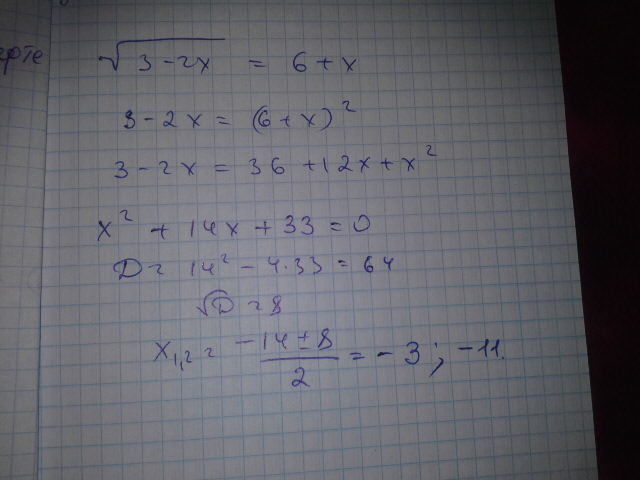 √3 - 2x = 6 + x
3 - 2x = (6 + x)²
3 - 2x = 36 + 12x + x²
x² + 14x + 33 = 0
D = 14² - 4·33 = 64
√D = 8
x₁,₂ = -14 ± 8 / 2 = -3; -11.